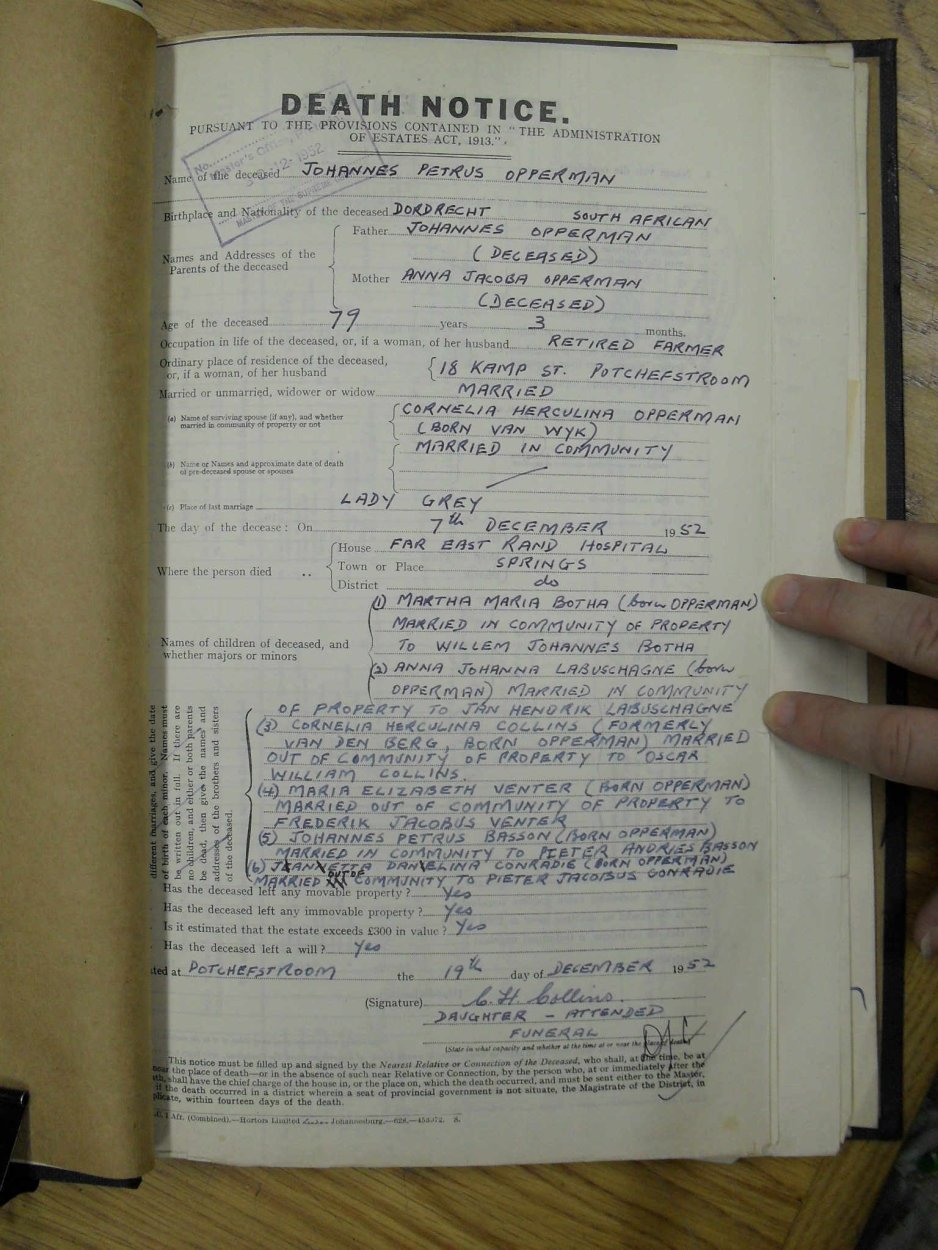 DEATH NOTICE.
PURSUANT TO THE PROVISIONS CONTAINED IN "THE ADMINISTRATION
OF ESTATES ACT, 1913."
No.
Master's Office
-12-1952
MASTER OF THE SUPREME
Name of the deceased JOHANNES PETRUS OPPERMAN
Birthplace and Nationality of the deceased DORDRECHT SOUTH AFRICAN
Names and Addresses of the Parents of the deceased
Father JOHANNES OPPERMAN
(DECEASED)
Mother ANNA JACOBA OPPERMAN
(DECEASED)
Age of the deceased 79 years 3 months.
Occupation in life of the deceased, or, if a woman, of her husband RETIRED FARMER
Ordinary place of residence of the deceased,
or, if a woman, of her husband 18 KAMP ST. POTCHEFSTROOM
Married or unmarried, widower or widow MARRIED
(a) Name of surviving spouse (if any), and whether
married in community of property or not
CORNELIA HERCULINA OPPERMAN
(BORN VAN WYK)
MARRIED IN COMMUNITY
(b) Name or Names and approximate date of death
of pre-deceased spouse or spouses
(c) Place of last marriage LADY GREY
The day of the decease: On 7th DECEMBER 1952
Where the person died ..
House FAR EAST RAND HOSPITAL
Town or Place SPRINGS
District do
Names of children of deceased, and
whether majors or minors
(1) MARTHA MARIA BOTHA (born OPPERMAN)
MARRIED IN COMMUNITY OF PROPERTY
TO WILLEM JOHANNES BOTHA
(2) ANNA JOHANNA LABUSCHAGNE (born
OPPERMAN) MARRIED IN COMMUNITY
OF PROPERTY TO JAN HENDRIK LABUSCHAGNE
(3) CORNELIA HERCULINA COLLINS (FORMERLY
VAN DEN BERG, BORN OPPERMAN) MARRIED
OUT OF COMMUNITY OF PROPERTY TO OSCAR
WILLIAM COLLINS.
(4) MARIA ELIZABETH VENTER (BORN OPPERMAN)
MARRIED OUT OF COMMUNITY OF PROPERTY TO
FREDERIK JACOBUS VENTER
(5) JOHANNES PETRUS BASSON (BORN OPPERMAN)
MARRIED IN COMMUNITY TO PIETER ANDRIES BASSON
(6) CONRADIE (BORN OPPERMAN)
MARRIED OUT OF COMMUNITY TO PIETER JACOBUS CONRADIE
different marriages, and give the date
of birth of each minor. Names must
be written out in full. If there are
no children, and either or both parents
be dead, then give the names and
addresses of the brothers and sisters
of the deceased.
Has the deceased left any movable property? Yes
Has the deceased left any immovable property? Yes
Is it estimated that the estate exceeds £300 in value? Yes
Has the deceased left a will? Yes
ted at POTCHEFSTROOM the 19th day of DECEMBER 1952
(Signature) C. H. Collins.
DAUGHTER - ATTENDED
FUNERAL
(State in what capacity and whether at the time at or near the place of death)
This notice must be filled up and signed by the Nearest Relative or Connection of the Deceased, who shall, at the time, be at
near the place of death—or in the absence of such near Relative or Connection, by the person who, at or immediately after the
th, shall have the chief charge of the house in, or the place on, which the death occurred, and must be sent either to the Master,
if the death occurred in a district wherein a seat of provincial government is not situate, the Magistrate of the District, in
plicate, within fourteen days of the death.
1 Aft. (Combined).—Hortors Limited Johannesburg.—628.—453072. S.